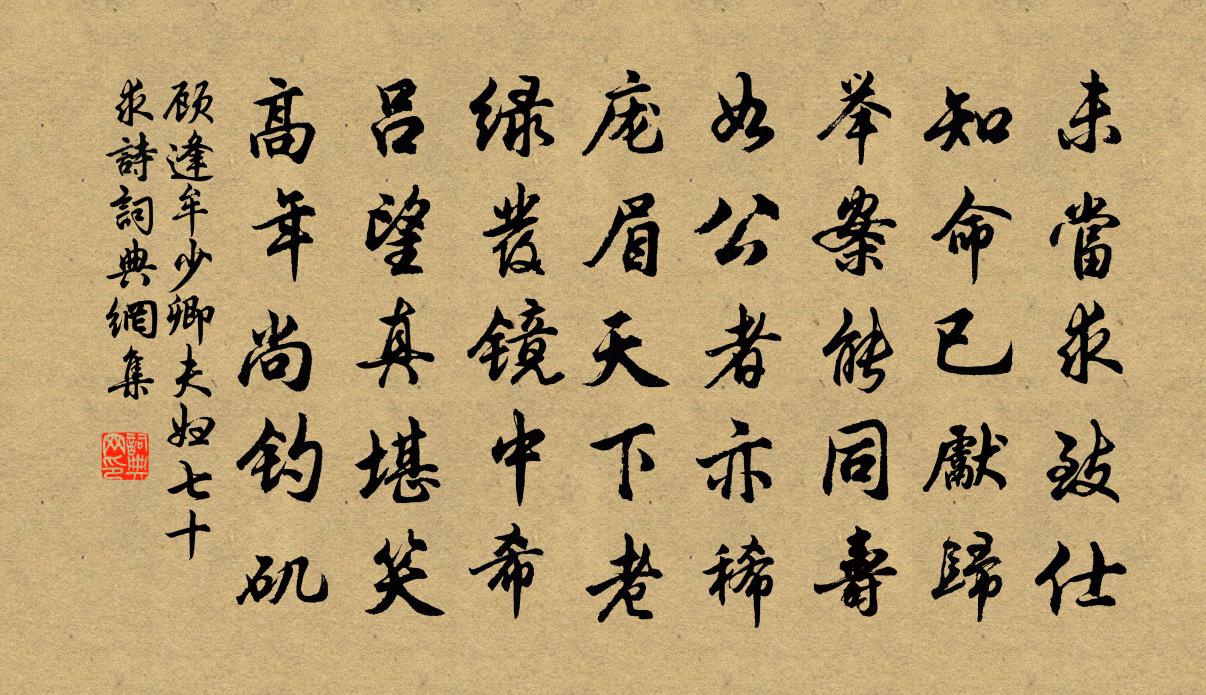 未當求致仕
知命已獻歸
举案能同壽
如公者亦稀
庞眉天下老
緑發镜中希
吕望真堪笑
高年尚钓矶
顾逢牟少卿夫妇七十
求詩詞典網集
詞典网印